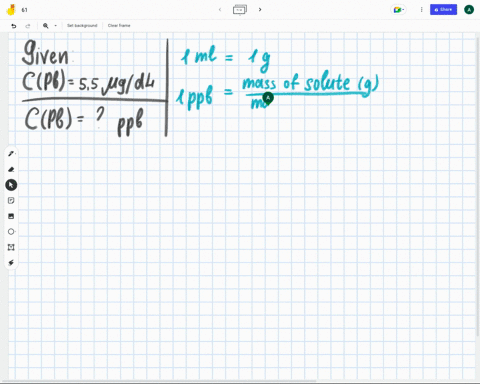 61
Set background
Clear frame
Share
A
Given
C(Pb) = 5,5 µg/dL
C(Pb) = ? ppb
1 ml = 1 g
1 ppb = mass of solute (g)
A